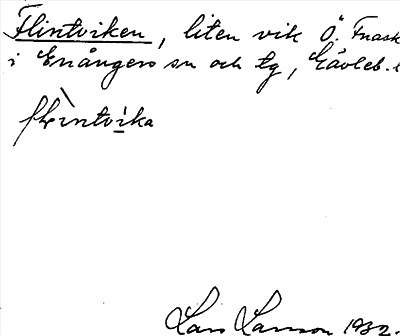 Flintviken, liten vik Ö. Fnask
i Enångers sn och tg, Gävleb. l
flìntvika
Lars Larsson 1932.